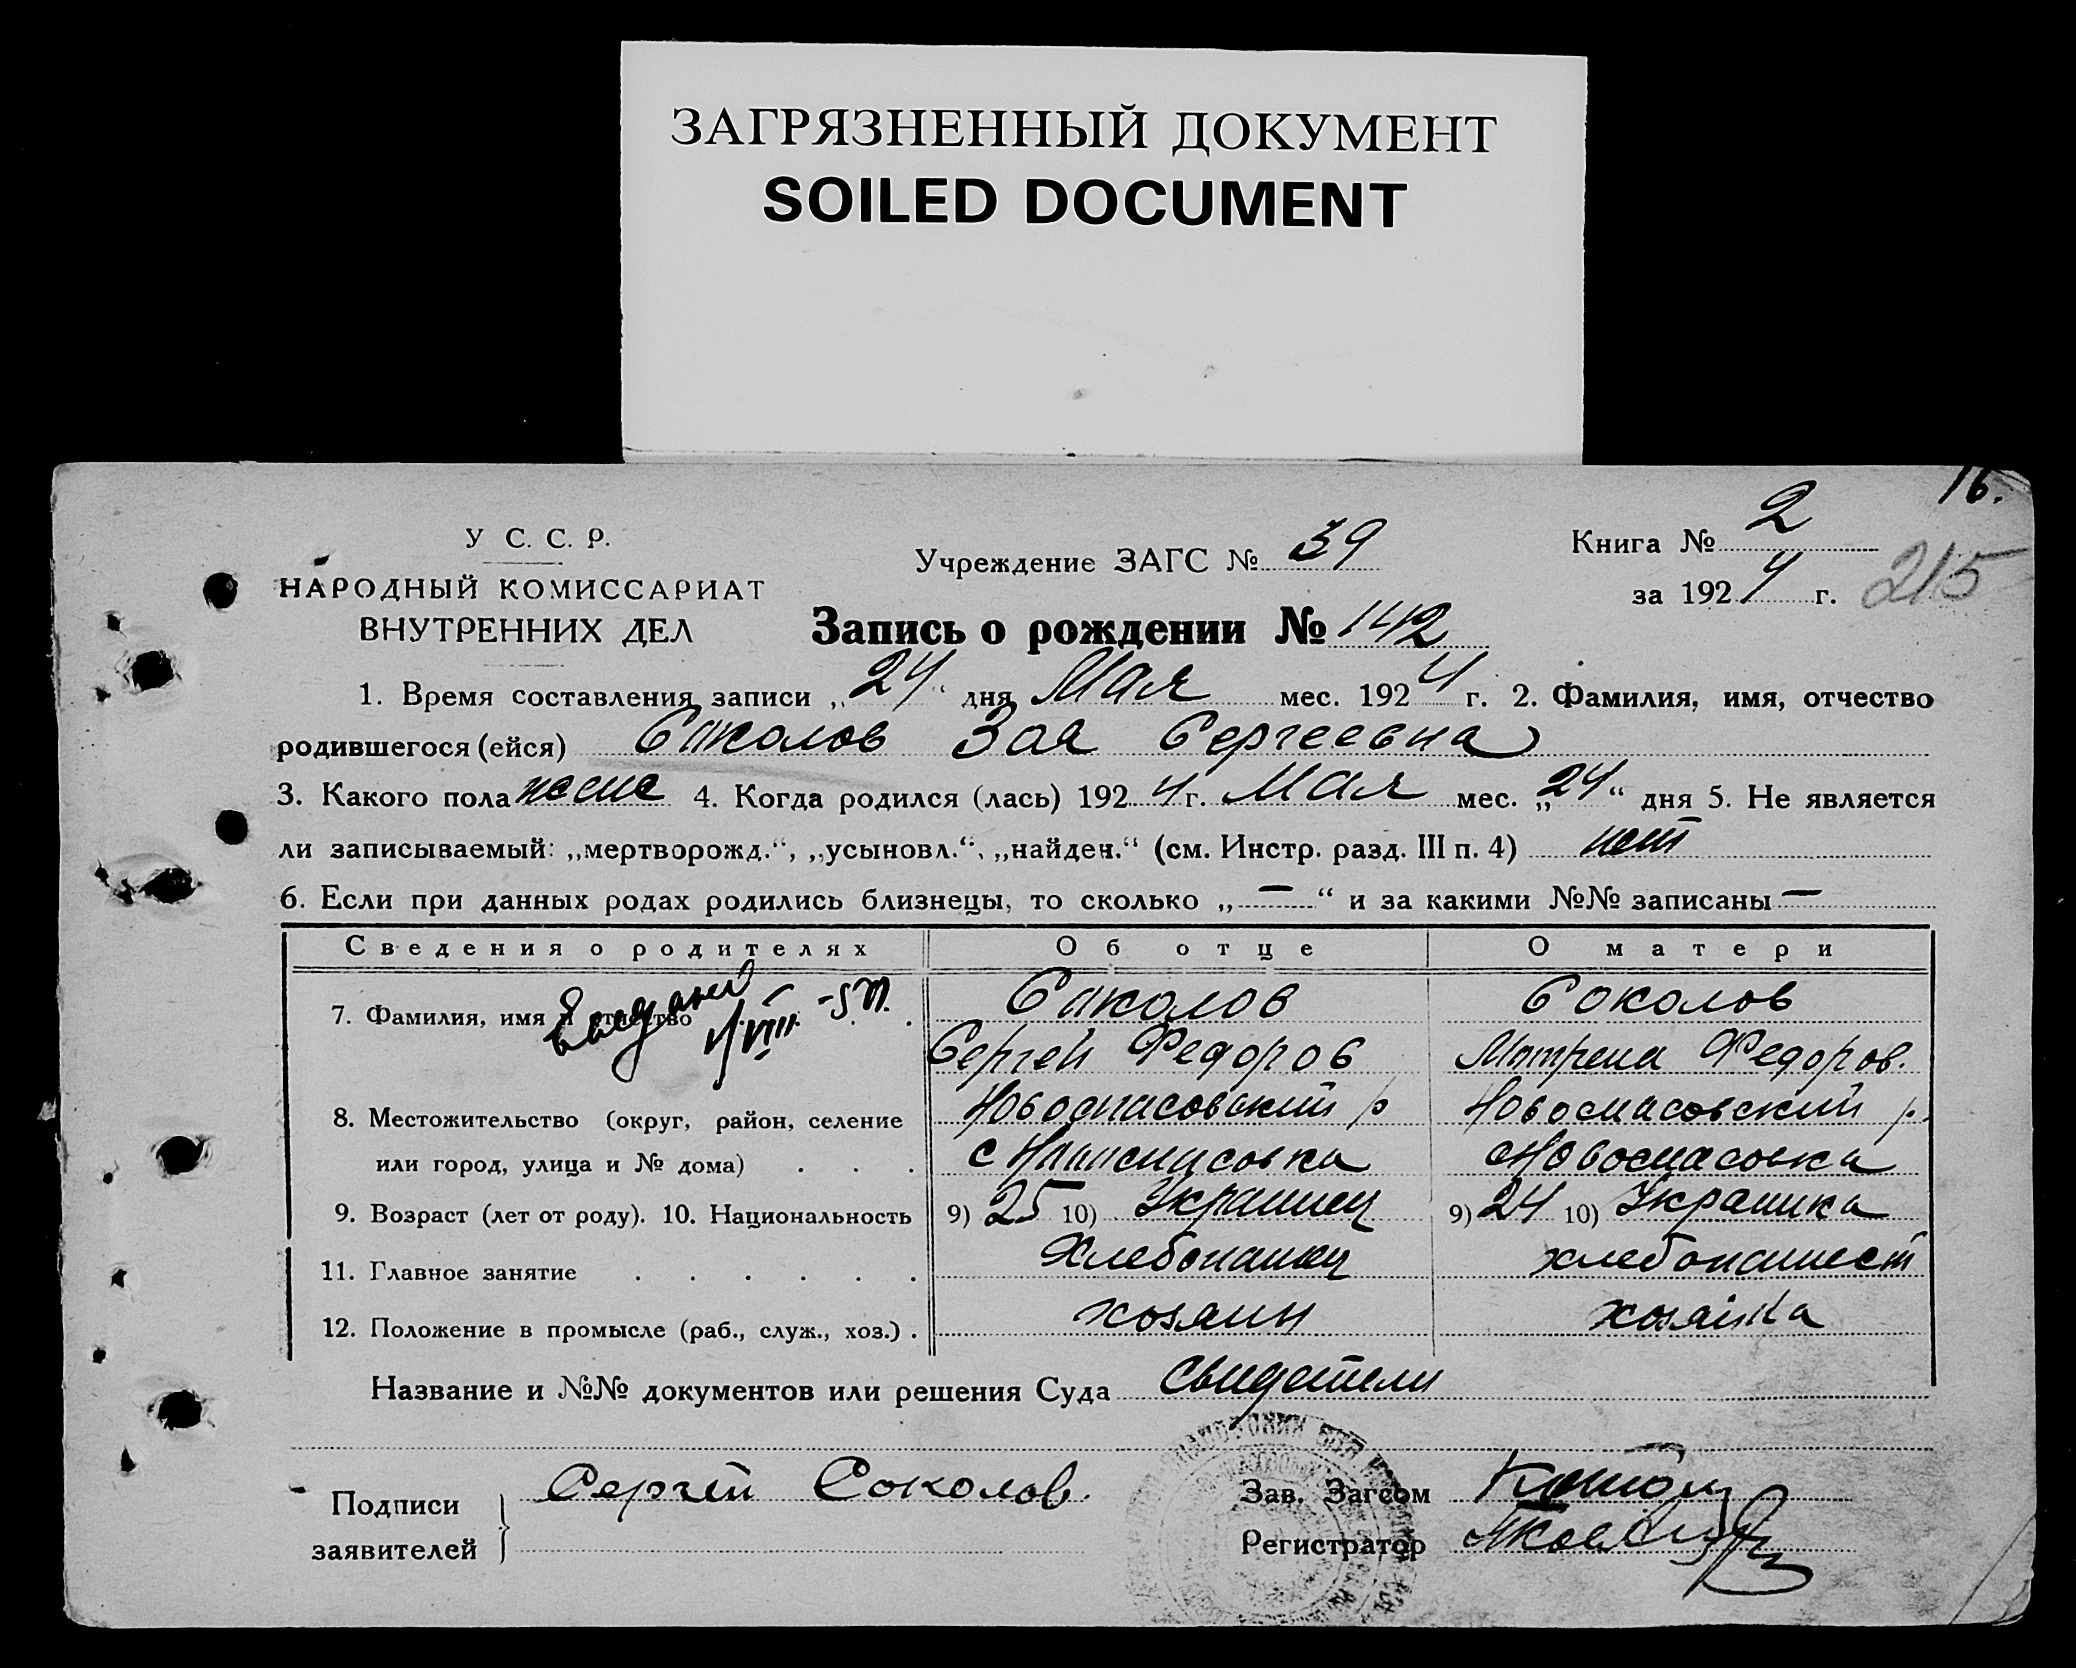 ЗАГРЯЗНЕННЫЙ ДОКУМЕНТ
SOILED DOCUMENT
16.
У С. С. Р.
НАРОДНЫЙ КОМИССАРИАТ
ВНУТРЕННИХ ДЕЛ
Учреждение ЗАГС № 39
Книга № 2
за 1924 г. 215
Запись о рождении № 142
1. Время составления записи „24“ дня Мая мес. 1924 г. 2. Фамилия, имя, отчество
родившегося (ейся) Саколов Зоя Сергеевна
3. Какого пола женс 4. Когда родился (лась) 1924 г. Мая мес. „24“ дня 5. Не является
ли записываемый: „мертворожд.“, „усыновл.“, „найден.“ (см. Инстр. разд. III п. 4) нет
6. Если при данных родах родились близнецы, то сколько „—“ и за какими №№ записаны —
Сведения о родителях Об отце О матери
7. Фамилия, имя и отчество Саколов Соколов
Сергей Федоров Матрена Федоров.
8. Местожительство (округ, район, селение Новоспасовский р Новоспасовский р.
или город, улица и № дома) с Новоспасовка
9. Возраст (лет от роду). 10. Национальность 9) 25 10) Украинец 9) 24 10) Украинка
11. Главное занятие Хлебопашец хлебопашест
12. Положение в промысле (раб., служ., хоз.) хозяин хозяйка
Название и №№ документов или решения Суда свидетели
Подписи Сергей Соколов
заявителей
Зав. Загсом
Регистратор